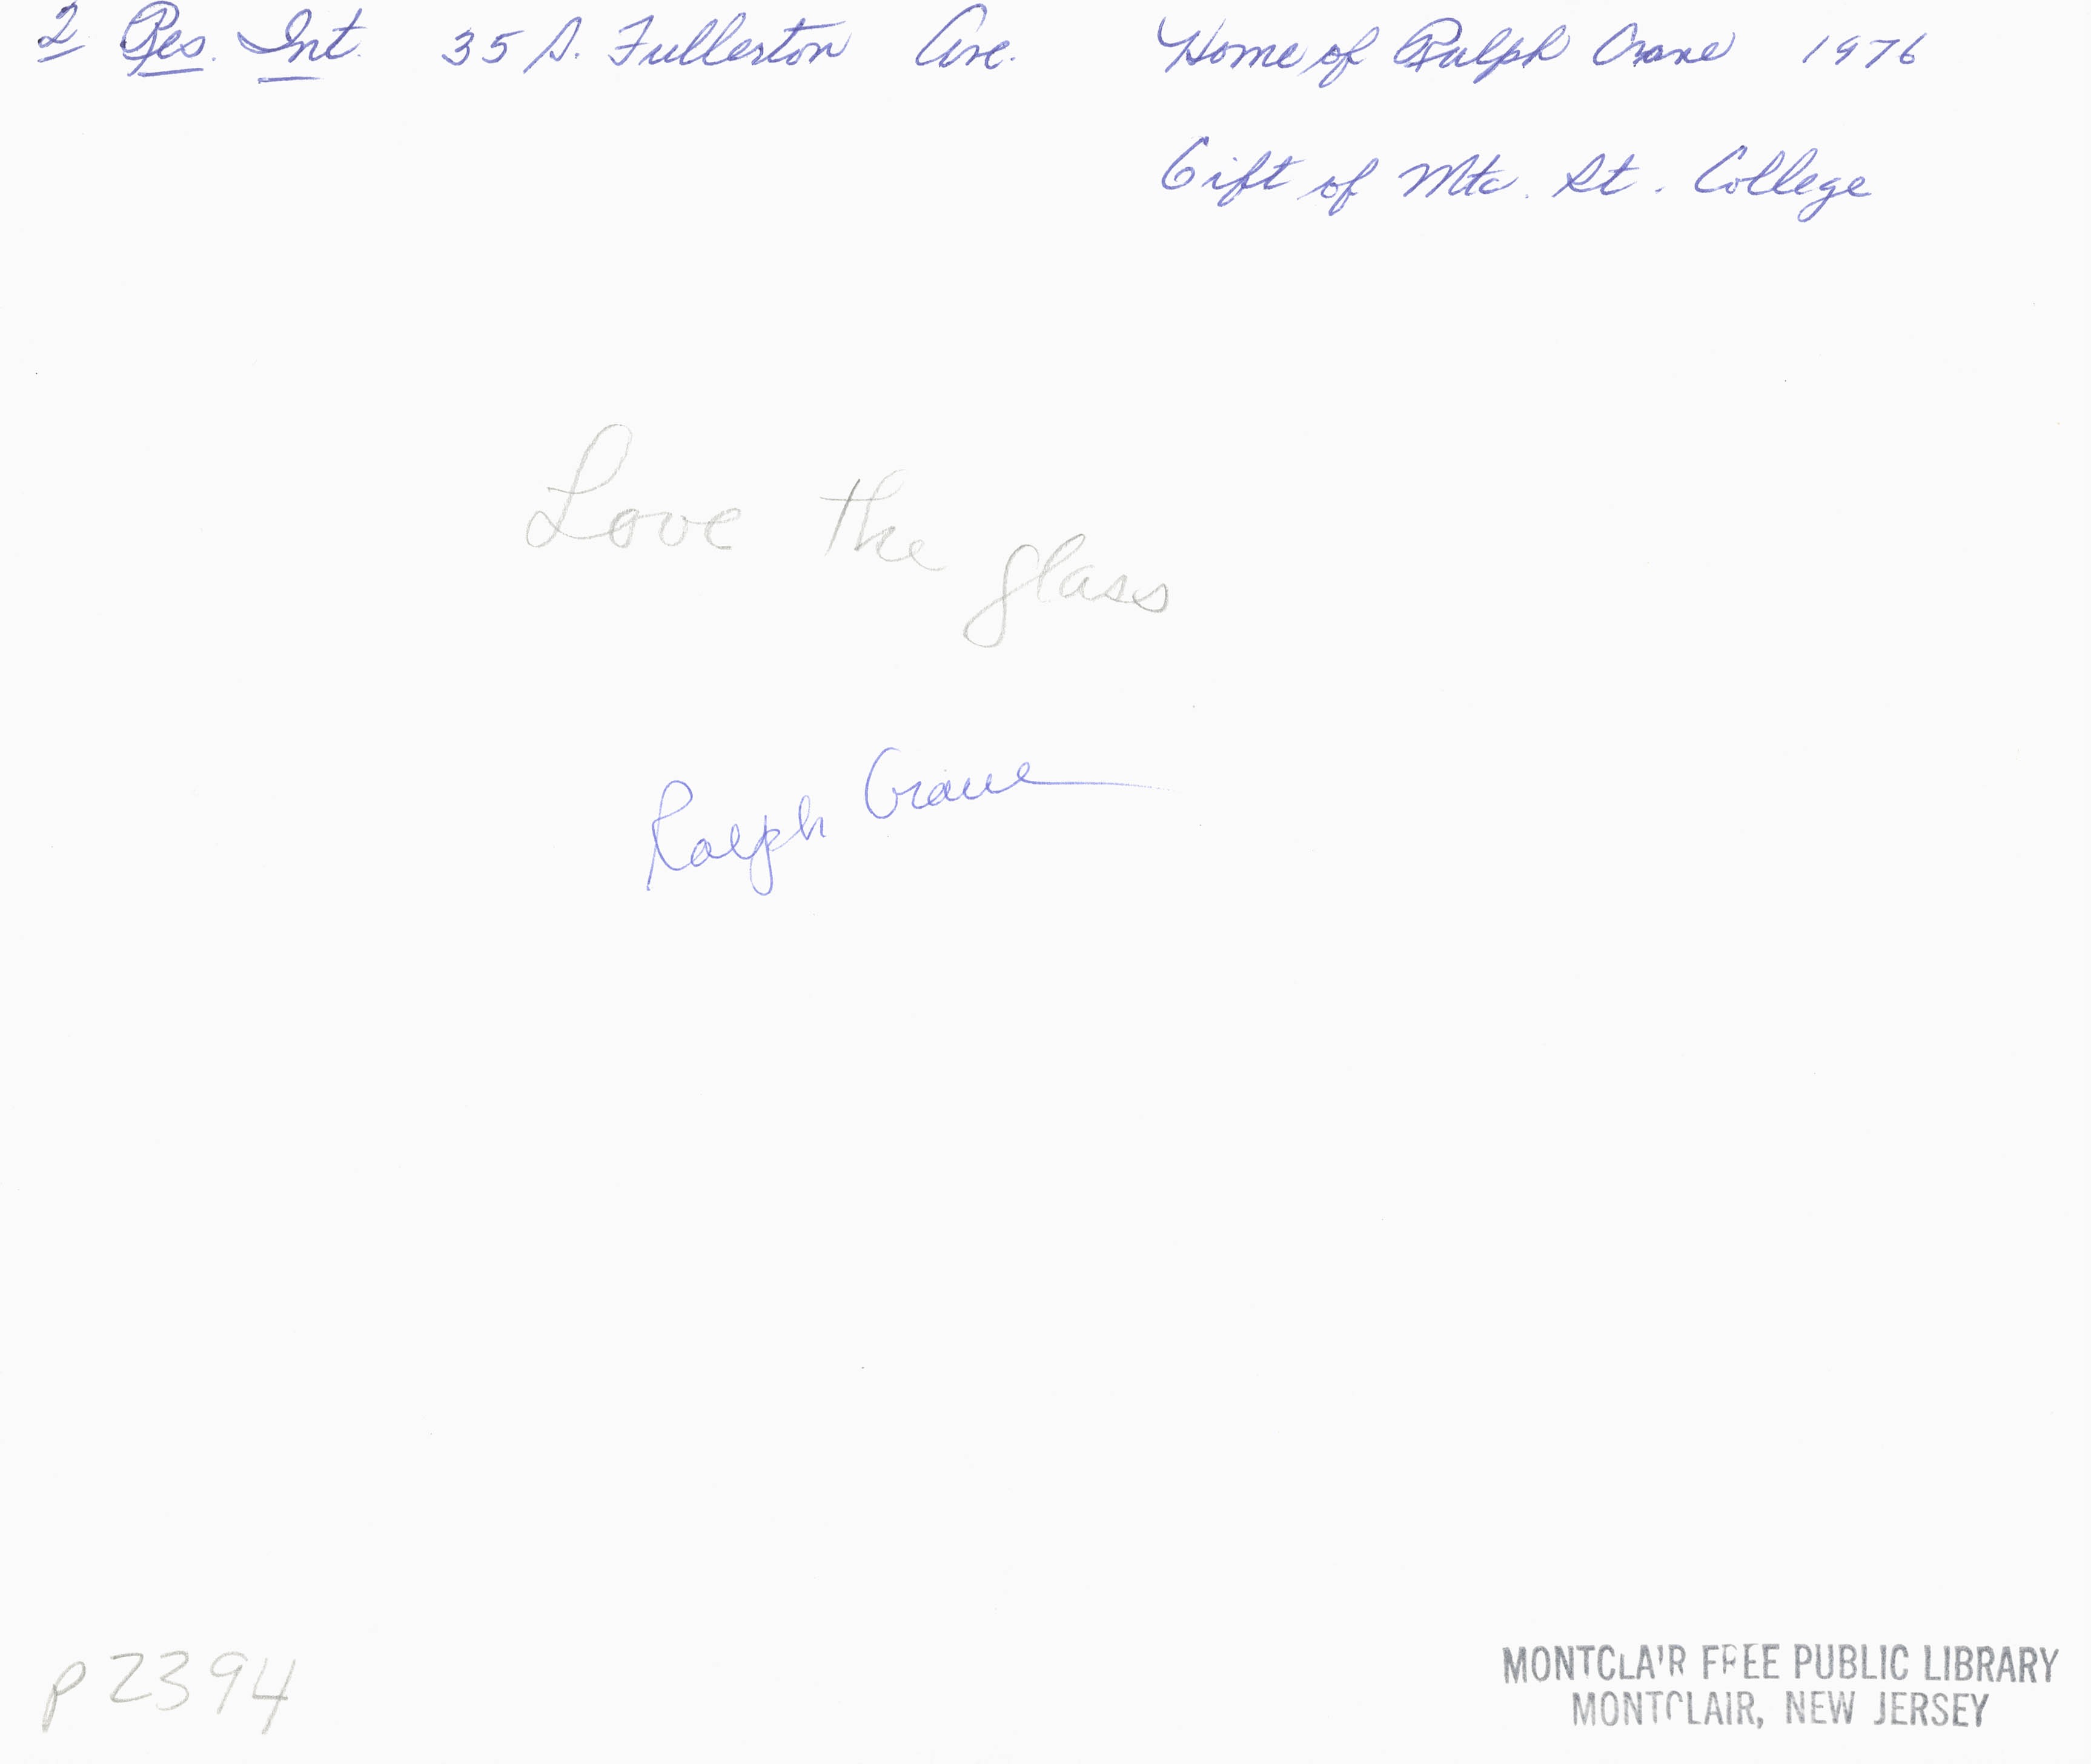 2 Res. Int. 35 S. Fullerton Ave. Home of Ralph Crane 1976
Gift of Mtc. St. College
Love the glass
Ralph Crane
P2394
MONTCLAIR FREE PUBLIC LIBRARY
MONTCLAIR, NEW JERSEY